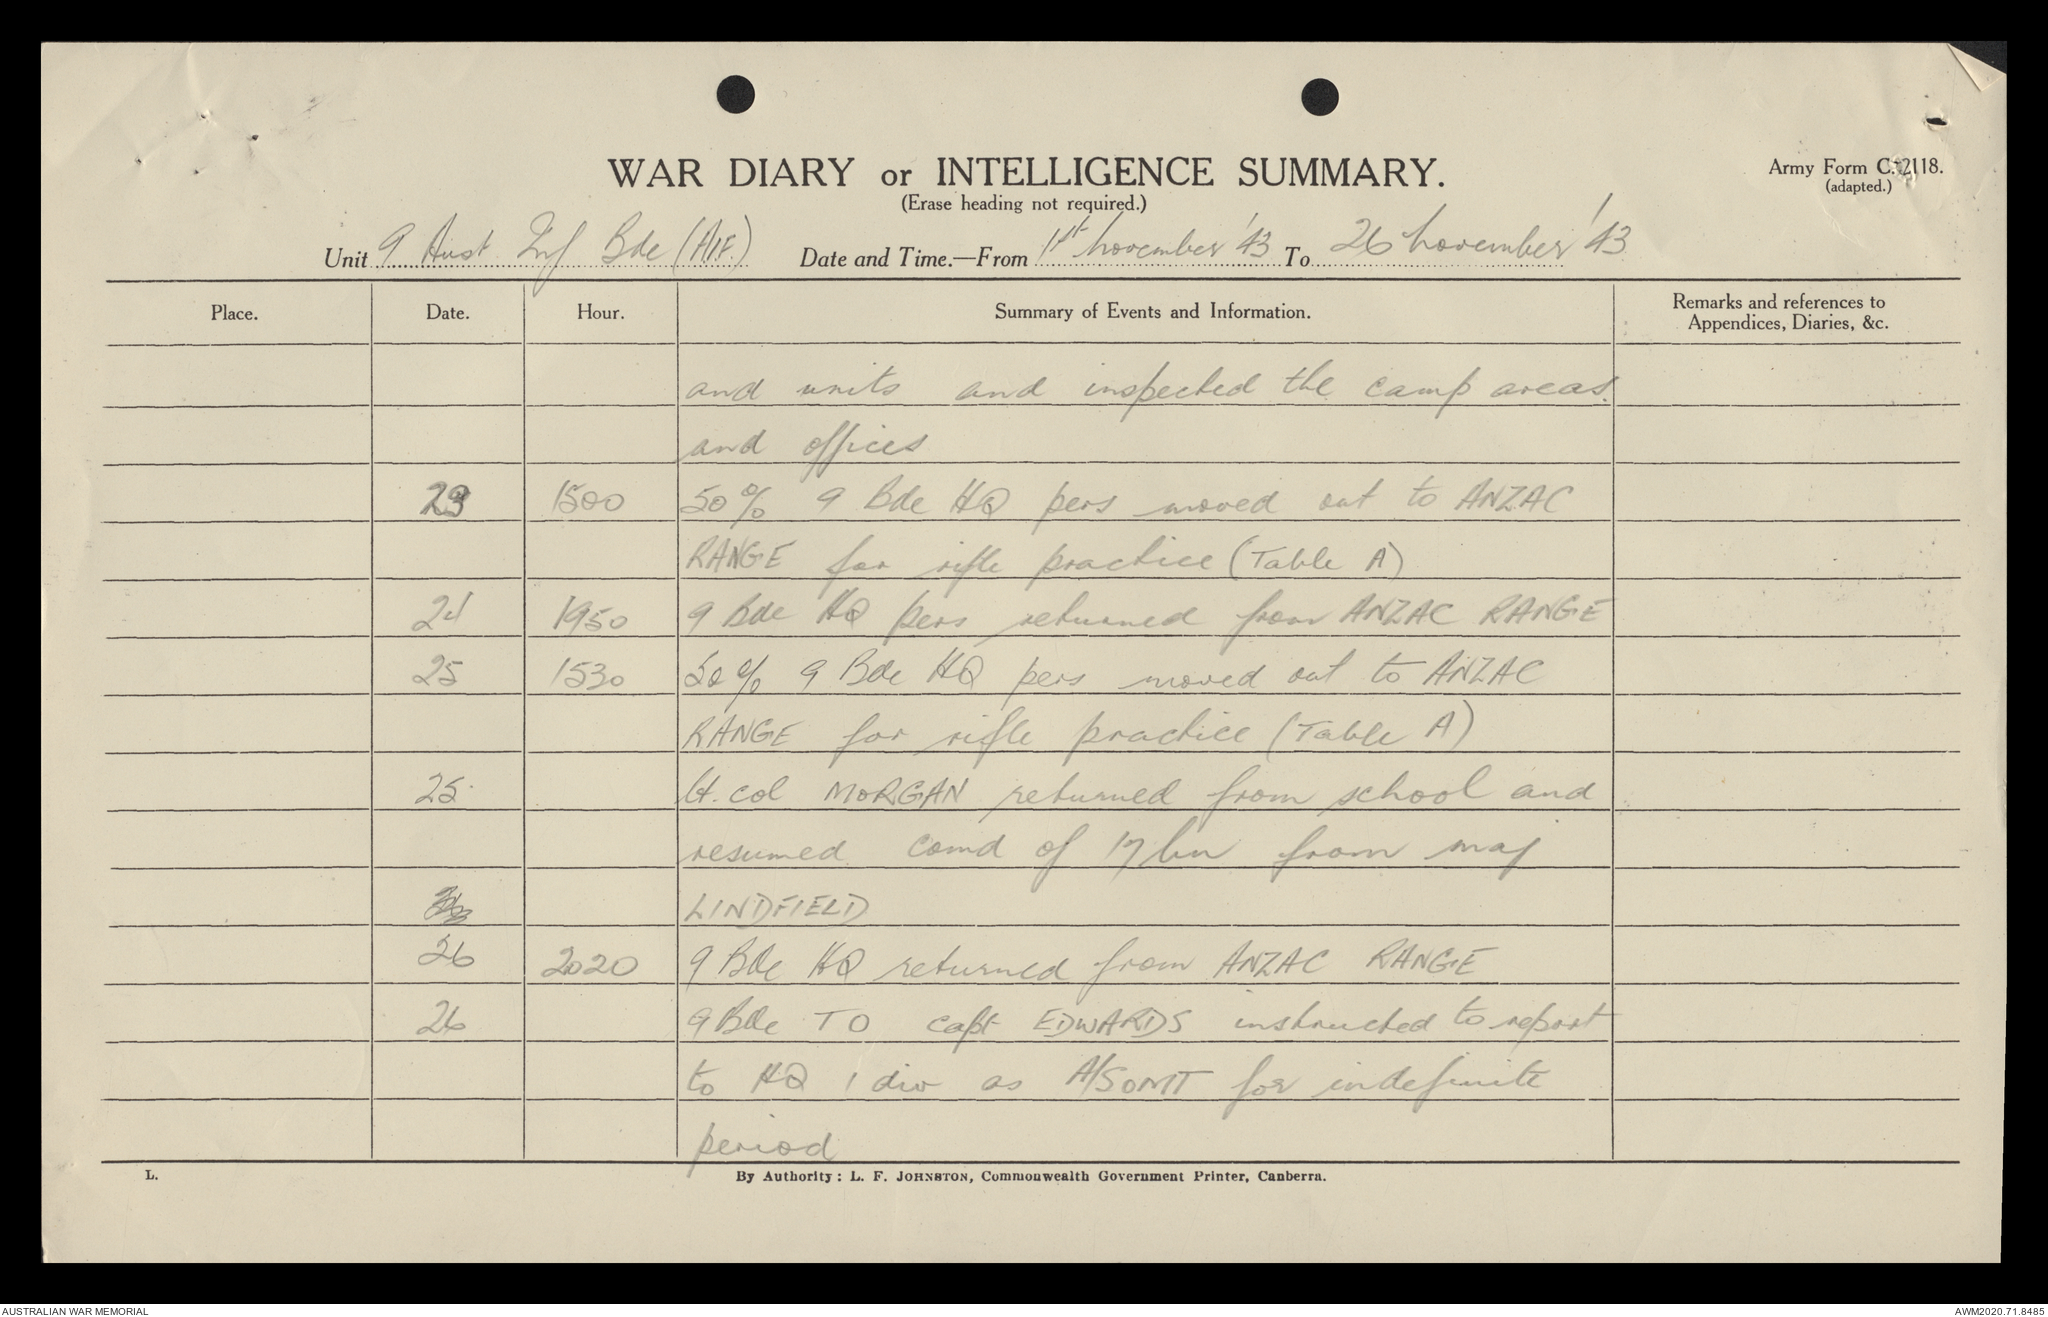 WAR DIARY or INTELLIGENCE SUMMARY.
(Erase heading not required.)
Army Form C. 2118.
(adapted.)
Unit 9 Aust Inf Bde (AIF) Date and Time.—From 1st November '43 To 26 November '43
Place. Date. Hour. Summary of Events and Information. Remarks and references to Appendices, Diaries, &c.
and units and inspected the camp areas.
and offices
23 1500 50% 9 Bde HQ pers moved out to ANZAC
RANGE for rifle practice (Table A)
24 1950 9 Bde HQ pers returned from ANZAC RANGE
25 1530 50% 9 Bde HQ pers moved out to ANZAC
RANGE for rifle practice (Table A)
25 Lt. col MORGAN returned from school and
resumed comd of 17 bn from maj
LINDFIELD
26 2020 9 Bde HQ returned from ANZAC RANGE
26 9 Bde TO capt EDWARDS instructed to report
to HQ 1 div as A/SOMT for indefinite
period
L. By Authority: L. F. JOHNSTON, Commonwealth Government Printer, Canberra.
AUSTRALIAN WAR MEMORIAL AWM2020.71.8485